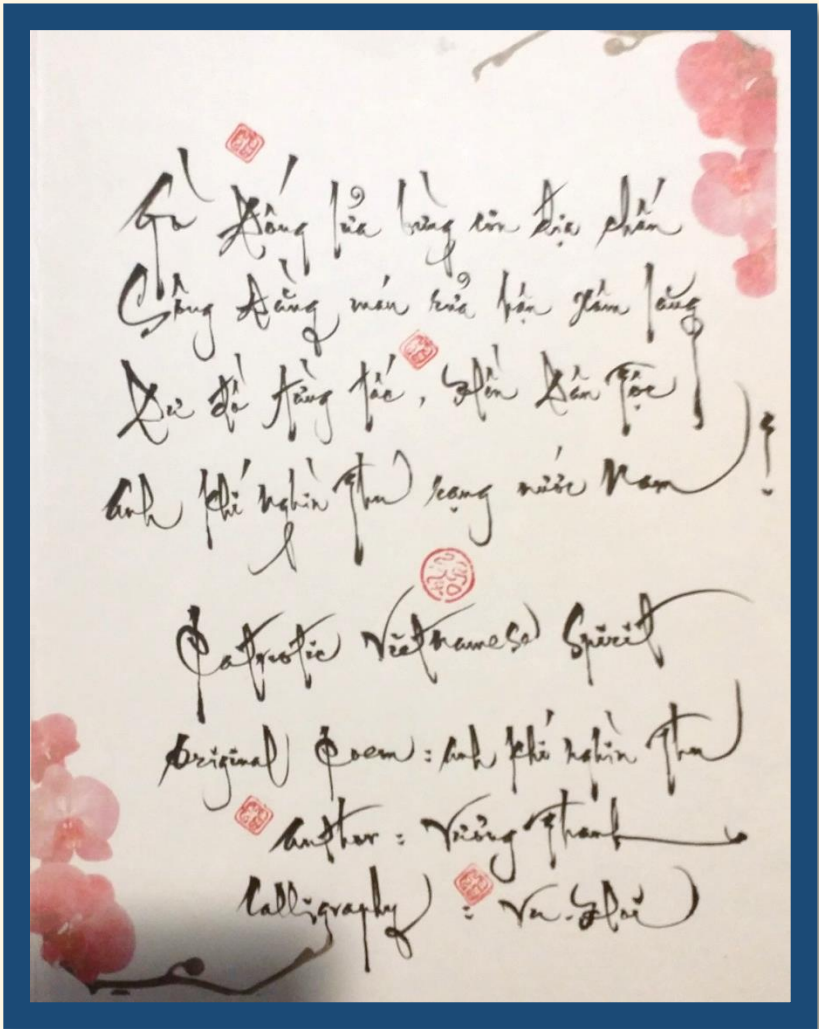 Gò Đống lửa bừng cơn địa chấn
Sông Đằng máu rửa hận xâm lăng
Dư đồ từng tấc, Hồn Dân Tộc
Anh khí nghìn Thu rạng nước Nam !
Patriotic Vietnamese Spirit
Original Poem : Anh khí nghìn Thu
Author : Vương Thanh
Calligraphy : Vu-Hoi